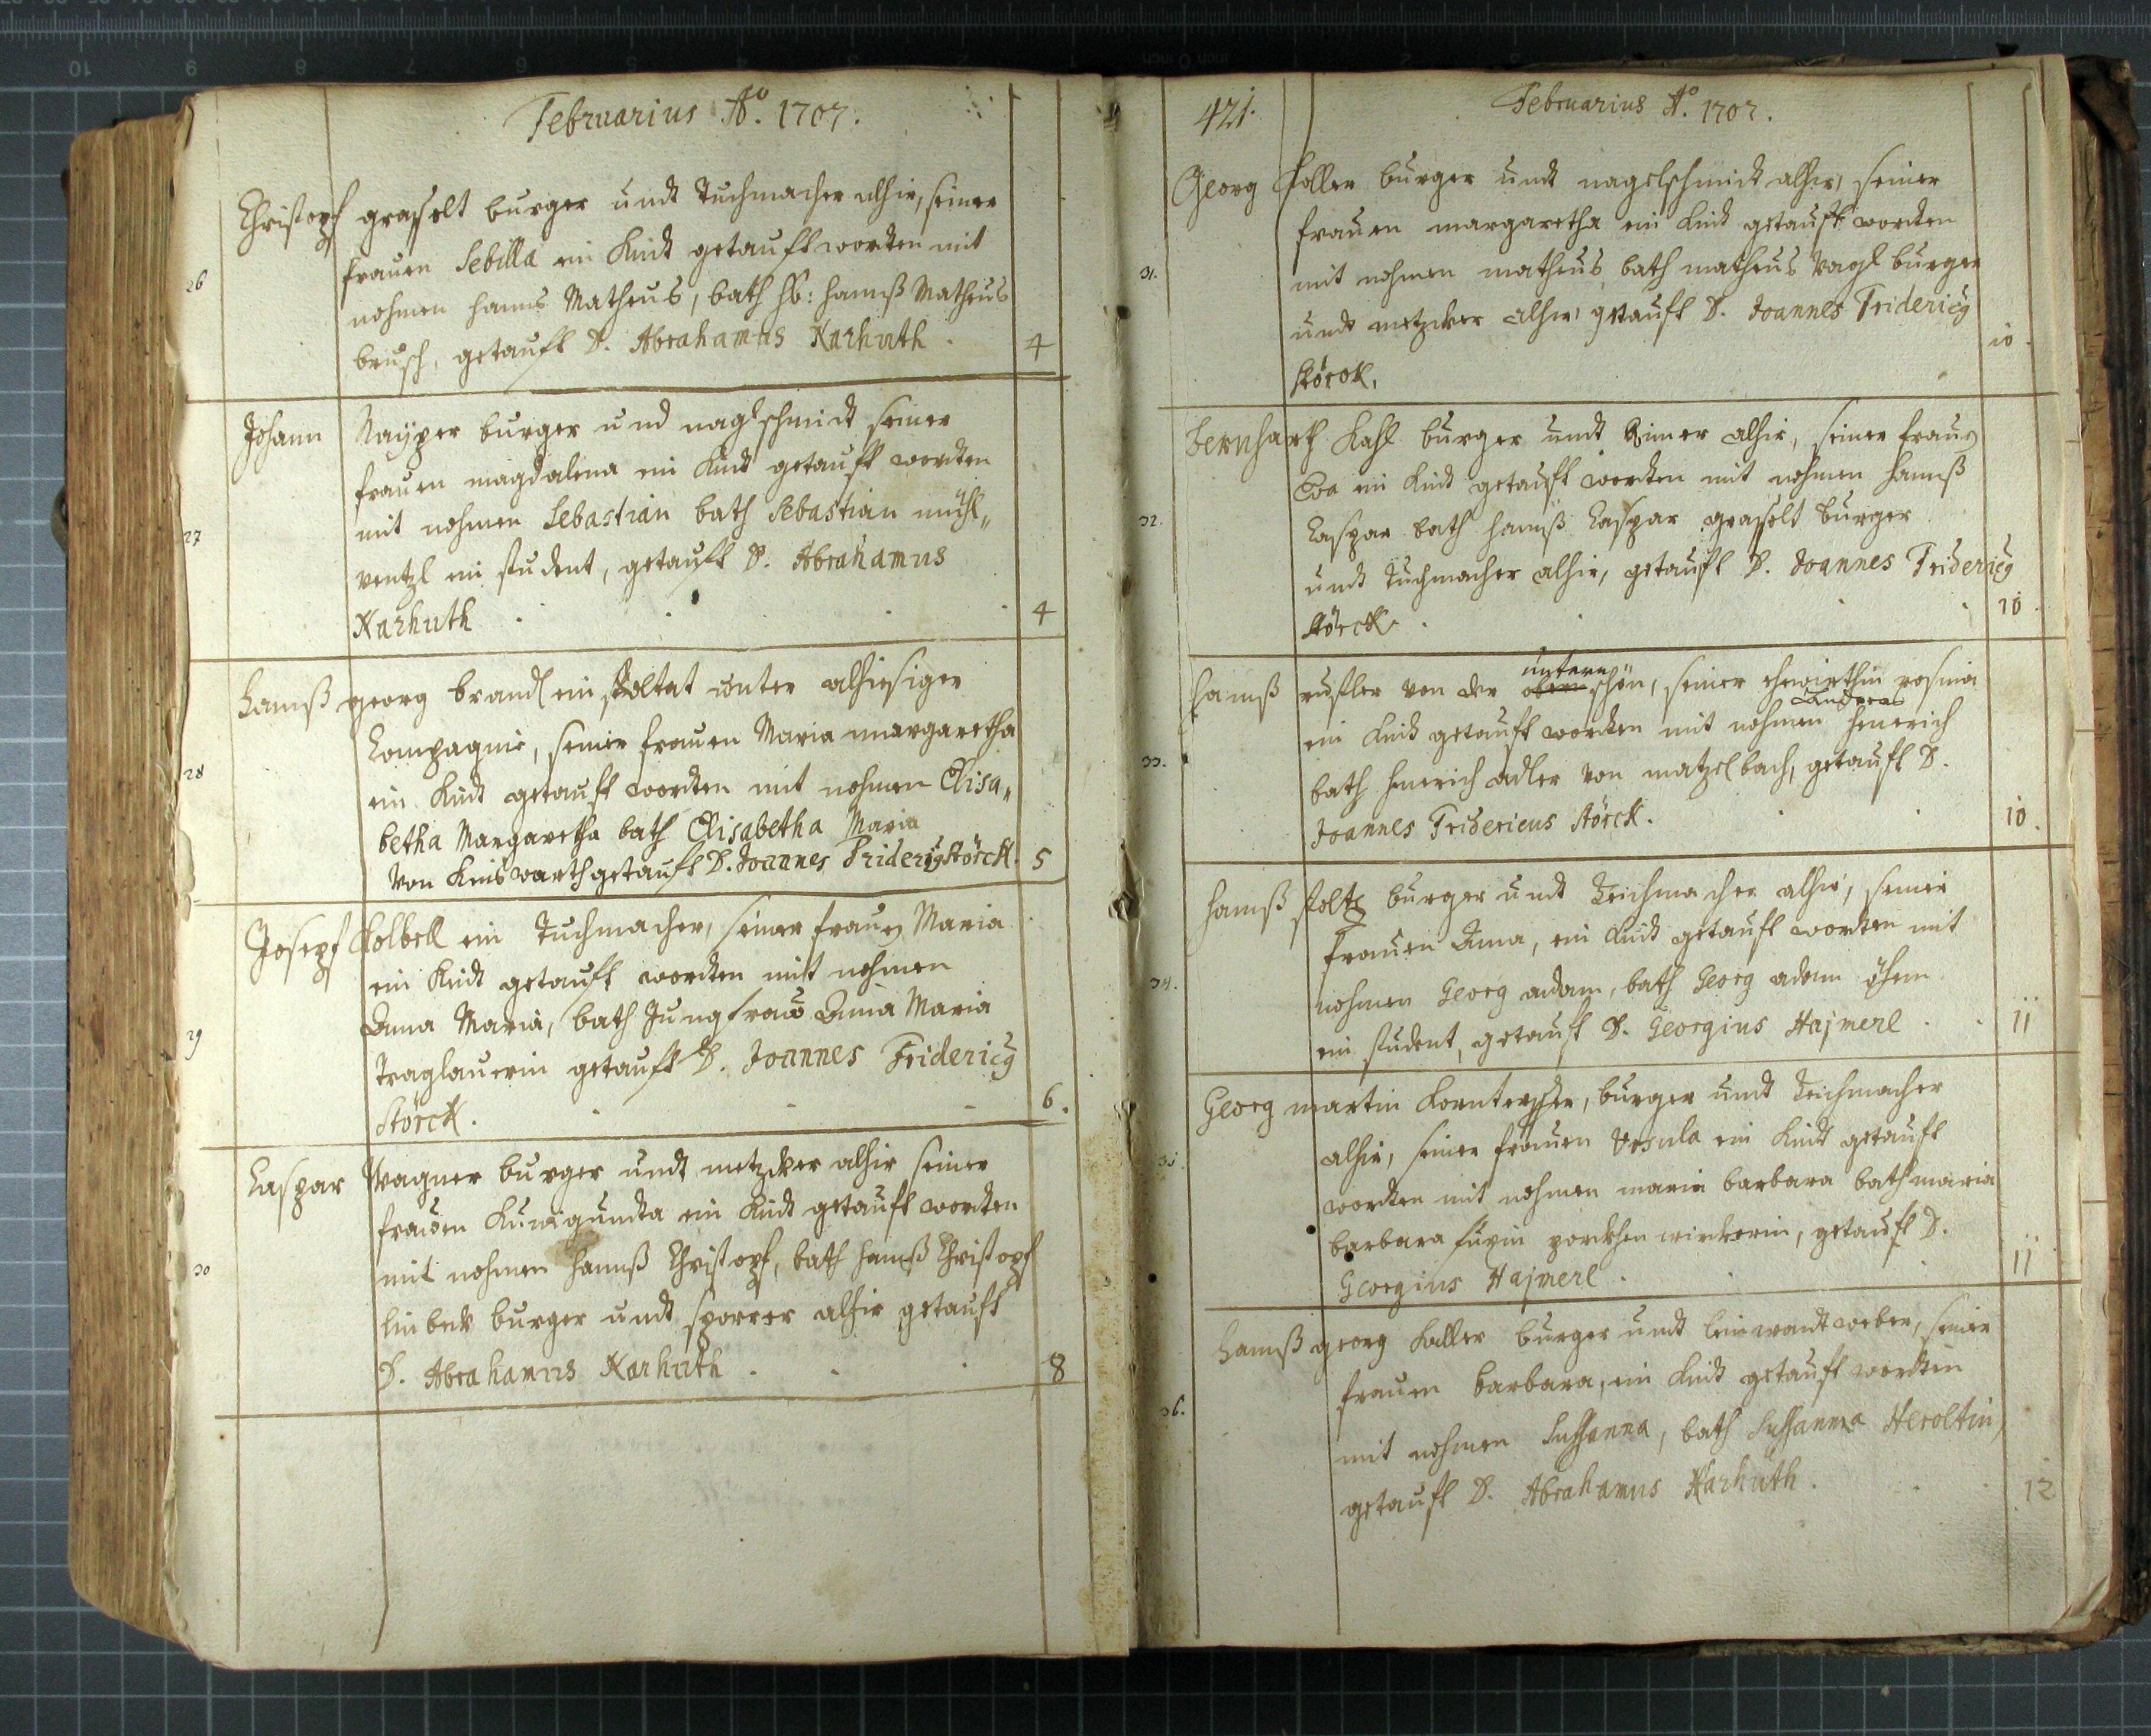 Februarius Aō. 1707.
Christopf grasselt burger undt Tuchmacher alhir, seiner
frauen Sebilla ein Kindt getaufft worden mit
26
nahmen Hanns Matheus, bath H: Hannß Matheus
brusch, getaufft D. Abrahamus Karhuth. 4
Johann Nayper burger und naglschmidt seiner
frauen magdalena ein Kindt getaufft worden
mit nahmen Sebastian bath Sebastian mühl„
27
ventzl ein student, getaufft D. Abrahamus
Karhuth 4
Hannß georg brandl ein soltat unter alhiesiger
Compagnie, seiner frauen Maria margaretha
28
ein Kindt getaufft worden mit nahmen Elisa„
betha Margaretha bath Elisabetha Maria
von getaufft D. Joannes Fridericg Störck. 5
Josepf Kolbell ein Tuchmacher, seiner frauen Maria
ein Kindt getaufft worden mit nahmen
29
Anna Maria, bath Jungfrau Anna Maria
Traglauerin getaufft D. Joannes Fridericg
Störck. 6.
Caspar Wagner burger undt metzcker alhir seiner
frauen Kunigundta ein Kindt getaufft worden
30
mit nahmen Hannß Christopf, bath Hannß Christopf
linbeck burger undt sporrer alhir getaufft
D. Abrahamus Karhuth 8
421. Februarius Aō. 1707.
Georg Holler burger undt nagelschmidt alhir, seiner
frauen margaretha ein Kindt getaufft worden
31.
mit nahmen matheus, bath matheus Vagl burger
undt metzcker alhir, getaufft D. Joannes Fridericg
Störck. 10.
Bernhart Kahl burger undt alhir, seiner frauen
Eva ein Kindt getaufft worden mit nahmen Hannß
32.
Caspar bath Hannß Caspar grasselt burger
undt Tuchmacher alhir, getaufft D. Joannes Fridericg
Störck. 10.
untern
Hannß rustler von der obern schön, seiner ehewirthin rosina
Andreas
ein Kindt getaufft worden mit nahmen Henerich
33.
bath Henerich adler von matzelbach, getaufft D.
Joannes Fridericus Störck. 10.
Hannß stoltz burger undt Zeichmacher alhir, seiner
frauen Anna, ein Kindt getaufft worden mit
34.
nahmen Georg adam, bath Georg adam
ein student, getaufft D. Georgius Hajmerl 11
Georg martin burger undt Zeichmacher
alhir, seiner frauen Ursula ein Kindt getaufft
35.
worden mit nahmen maria barbara bath maria
barbara getaufft D.
Georgius Hajmerl. 11
Hannß georg Haller burger undt leinwandtweber, seiner
frauen barbara, ein Kindt getaufft worden
36.
mit nahmen Sussanna, bath Sussanna Heroltin,
getaufft D. Abrahamus Karhuth. 12